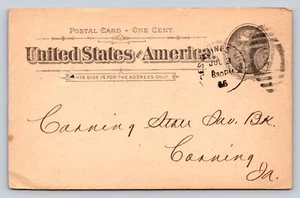 POSTAL CARD - ONE CENT.
United States of America.
THIS SIDE IS FOR THE ADDRESS ONLY.
JUL
830PM
Corning State Sav. Bk.
Corning
Ia.